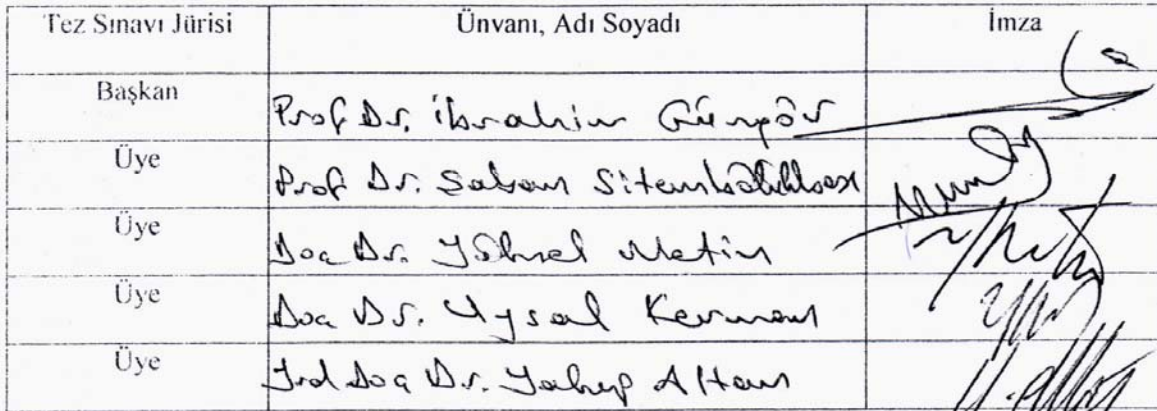 Tez Sınavı Jürisi Ünvanı, Adı Soyadı İmza
Başkan Prof Dr. İbrahim Güngör
Üye Prof Dr. Şaban
Üye Doç Dr. Metin
Üye Doç Dr. Uysal Kerman
Üye Yrd Doç Dr. Yakup Altan